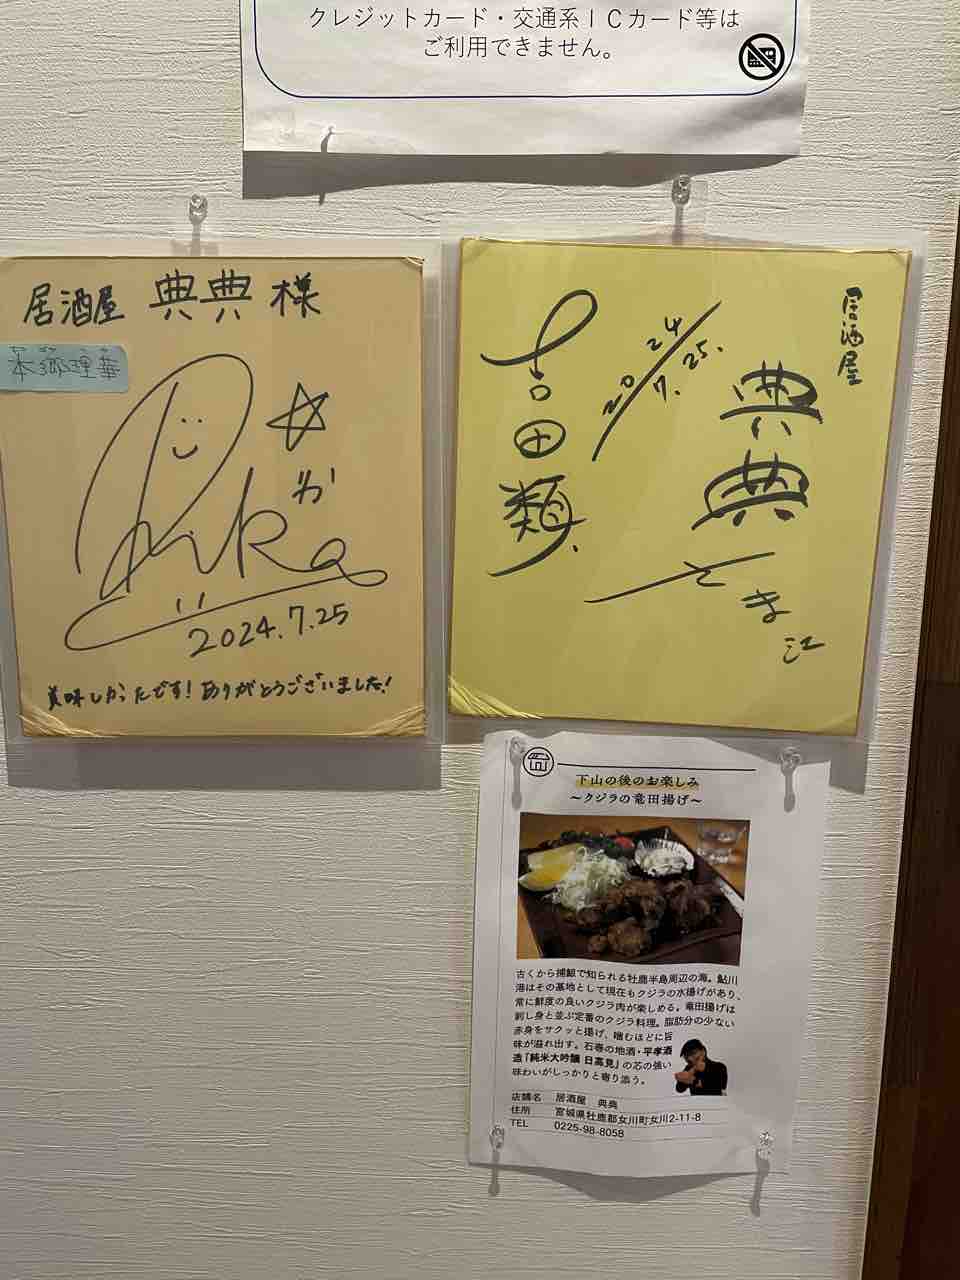 クレジットカード・交通系ＩＣカード等は
ご利用できません。
居酒屋 典典 様
本郷理華
Rika
わ
2024.7.25
美味しかったです！ありがとうございました！
居酒屋
典典
さま
江
2024
7.25.
吉田類
下山の後のお楽しみ
～クジラの竜田揚げ～
古くから捕鯨で知られる牡鹿半島周辺の海。鮎川
港はその基地として現在もクジラの水揚げがあり、
常に鮮度の良いクジラ肉が楽しめる。竜田揚げは
刺し身と並ぶ定番のクジラ料理。脂肪分の少ない
赤身をサクッと揚げ、噛むほどに旨
味が溢れ出す。石巻の地酒・平孝酒
造「純米大吟醸 日高見」の芯の強い
味わいがしっかりと寄り添う。
店舗名 居酒屋 典典
住所 宮城県牡鹿郡女川町女川2-11-8
TEL 0225-98-8058